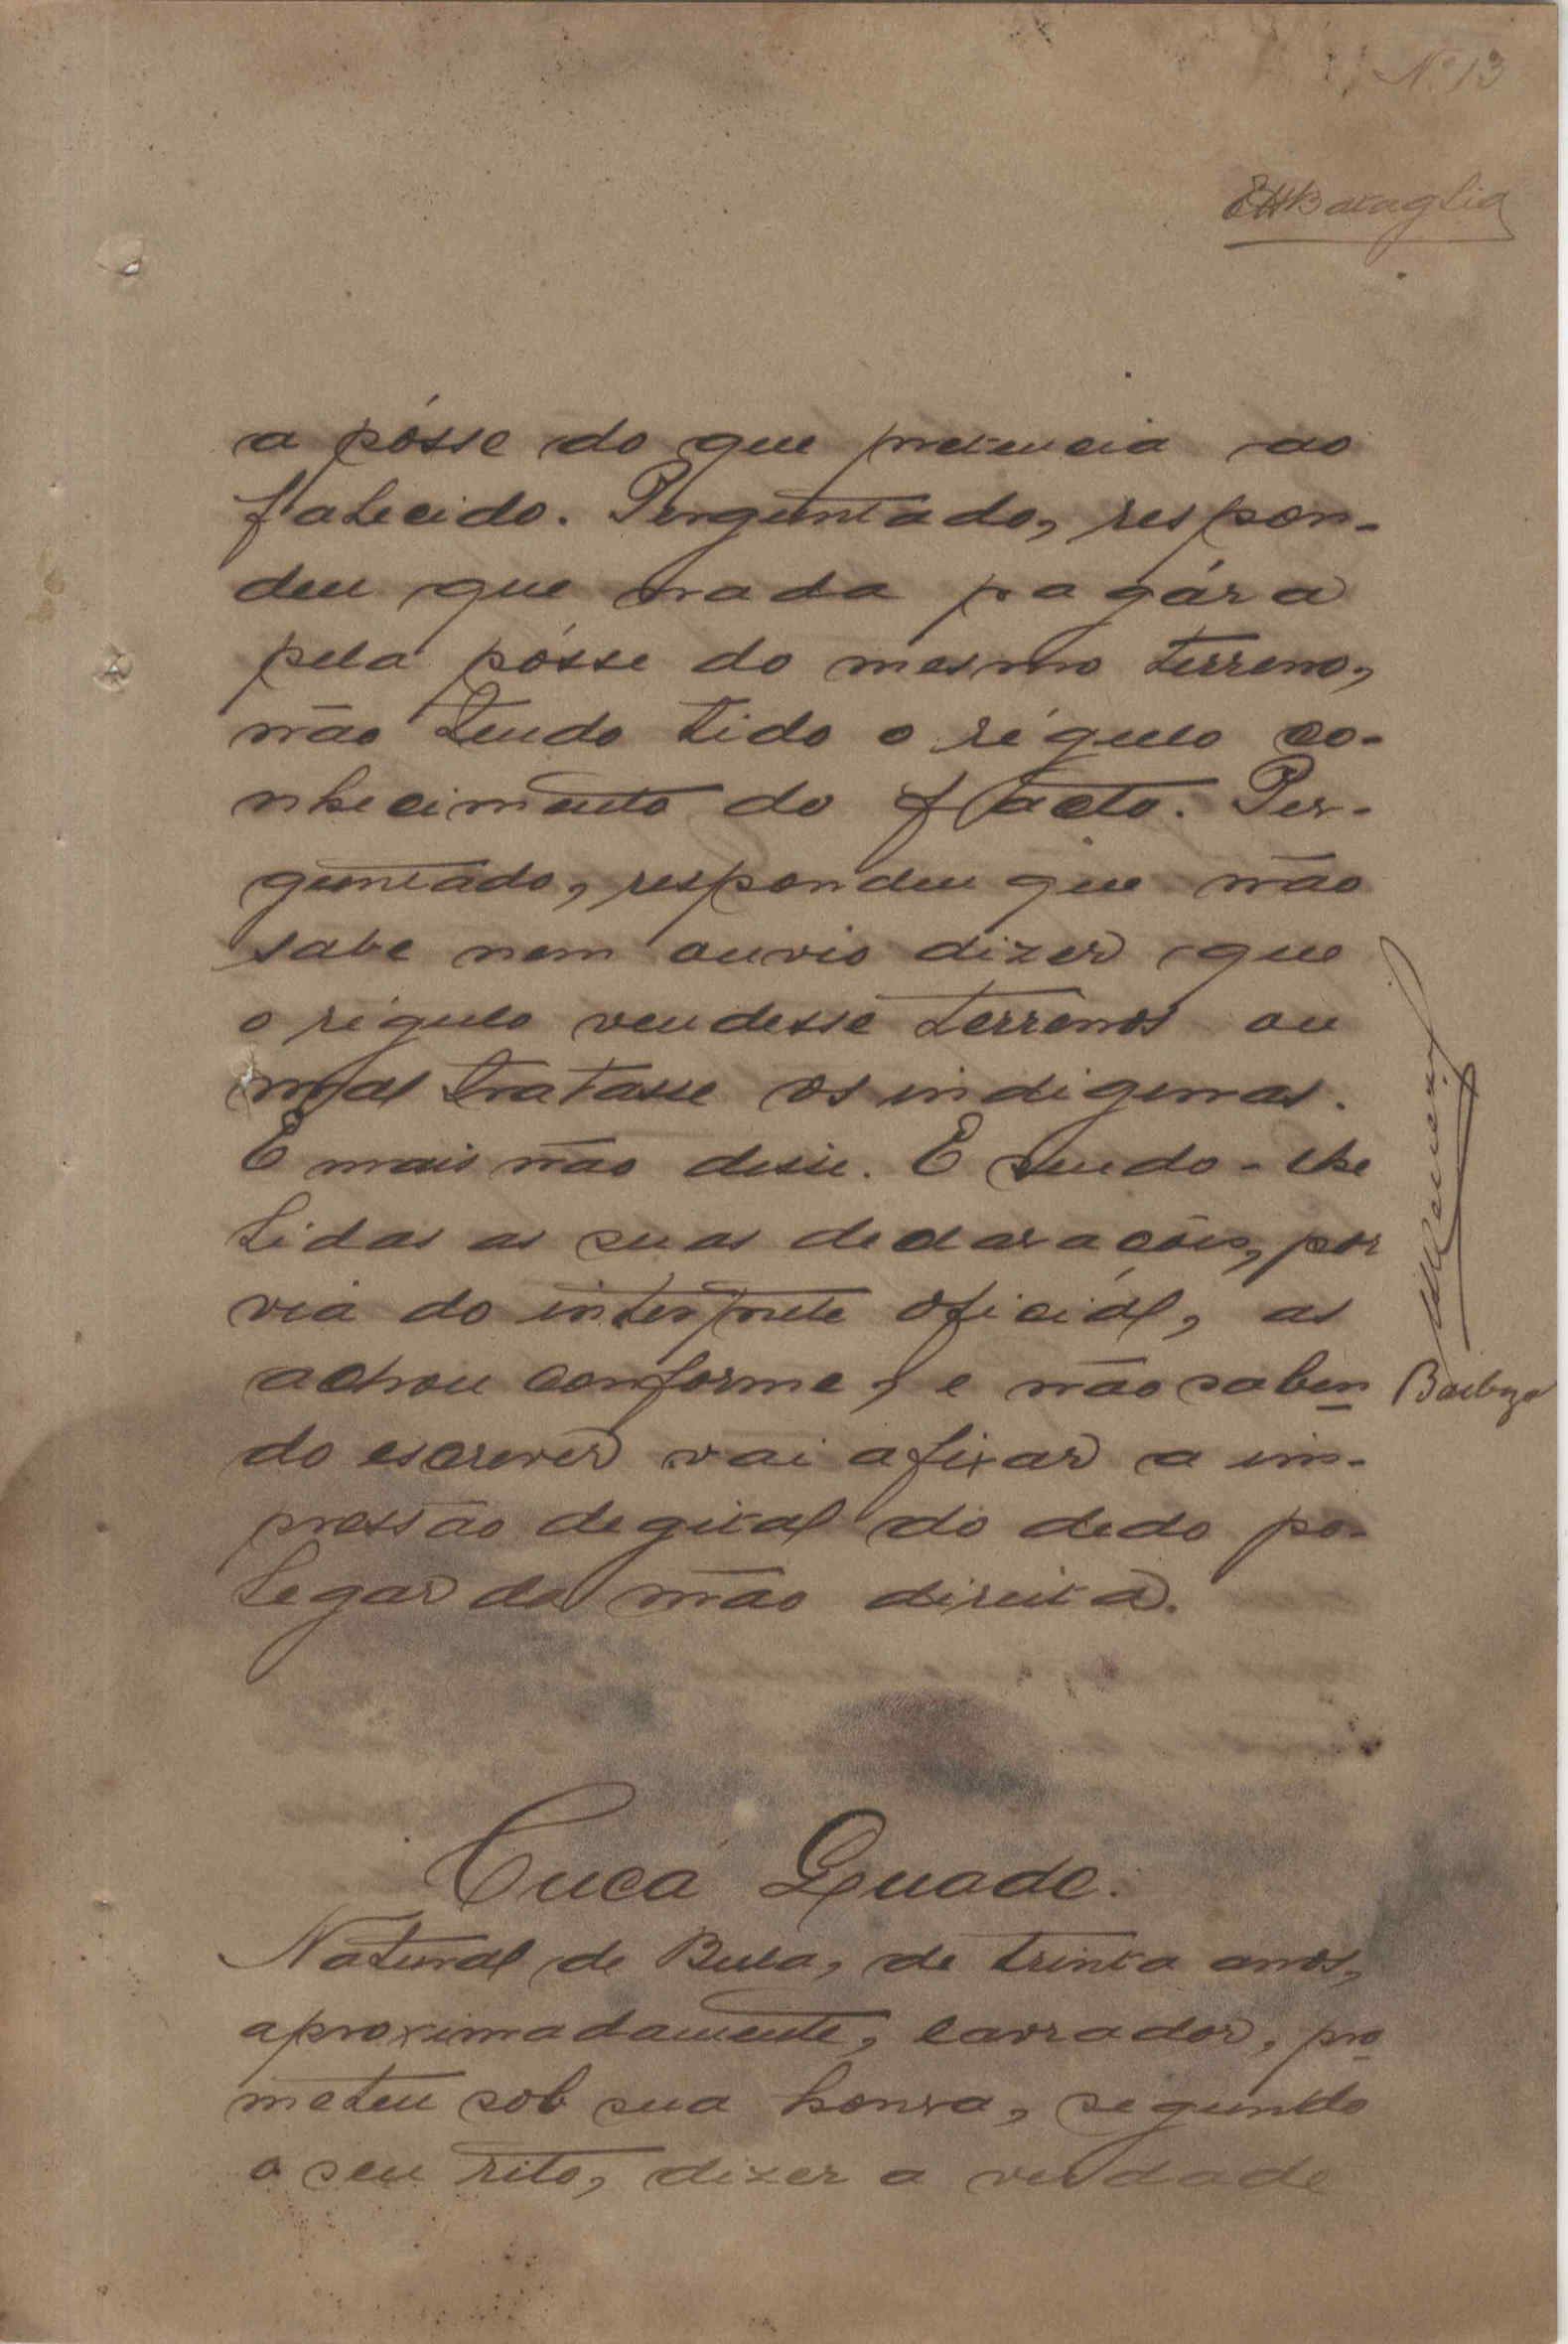 Nº 13
a pósse do que pretencia ao
falecido. Perguntado, respon-
deu que nada pagára
pela pósse do mesmo terreno,
não tendo tido o régulo co-
nhecimento do facto. Per-
guntado, respondeu que não
sabe nem ouvio dizer que
o régulo vendesse terrenos ou
mal tratasse os indigenas.
E mais não disse. E sendo-lhe
lidas as suas declarações, por
via do interprete oficiál, as
achou conforme, e não saben
do escrever vai afixar a im-
pressão degital do dedo po-
legar da mão direita.
Barboza
Cucá Quade.
Natural de Bula, de trinta anos,
aproximadamente, lavrador, pro
meteu sob sua honra, segundo
o seu rito, dizer a verdade